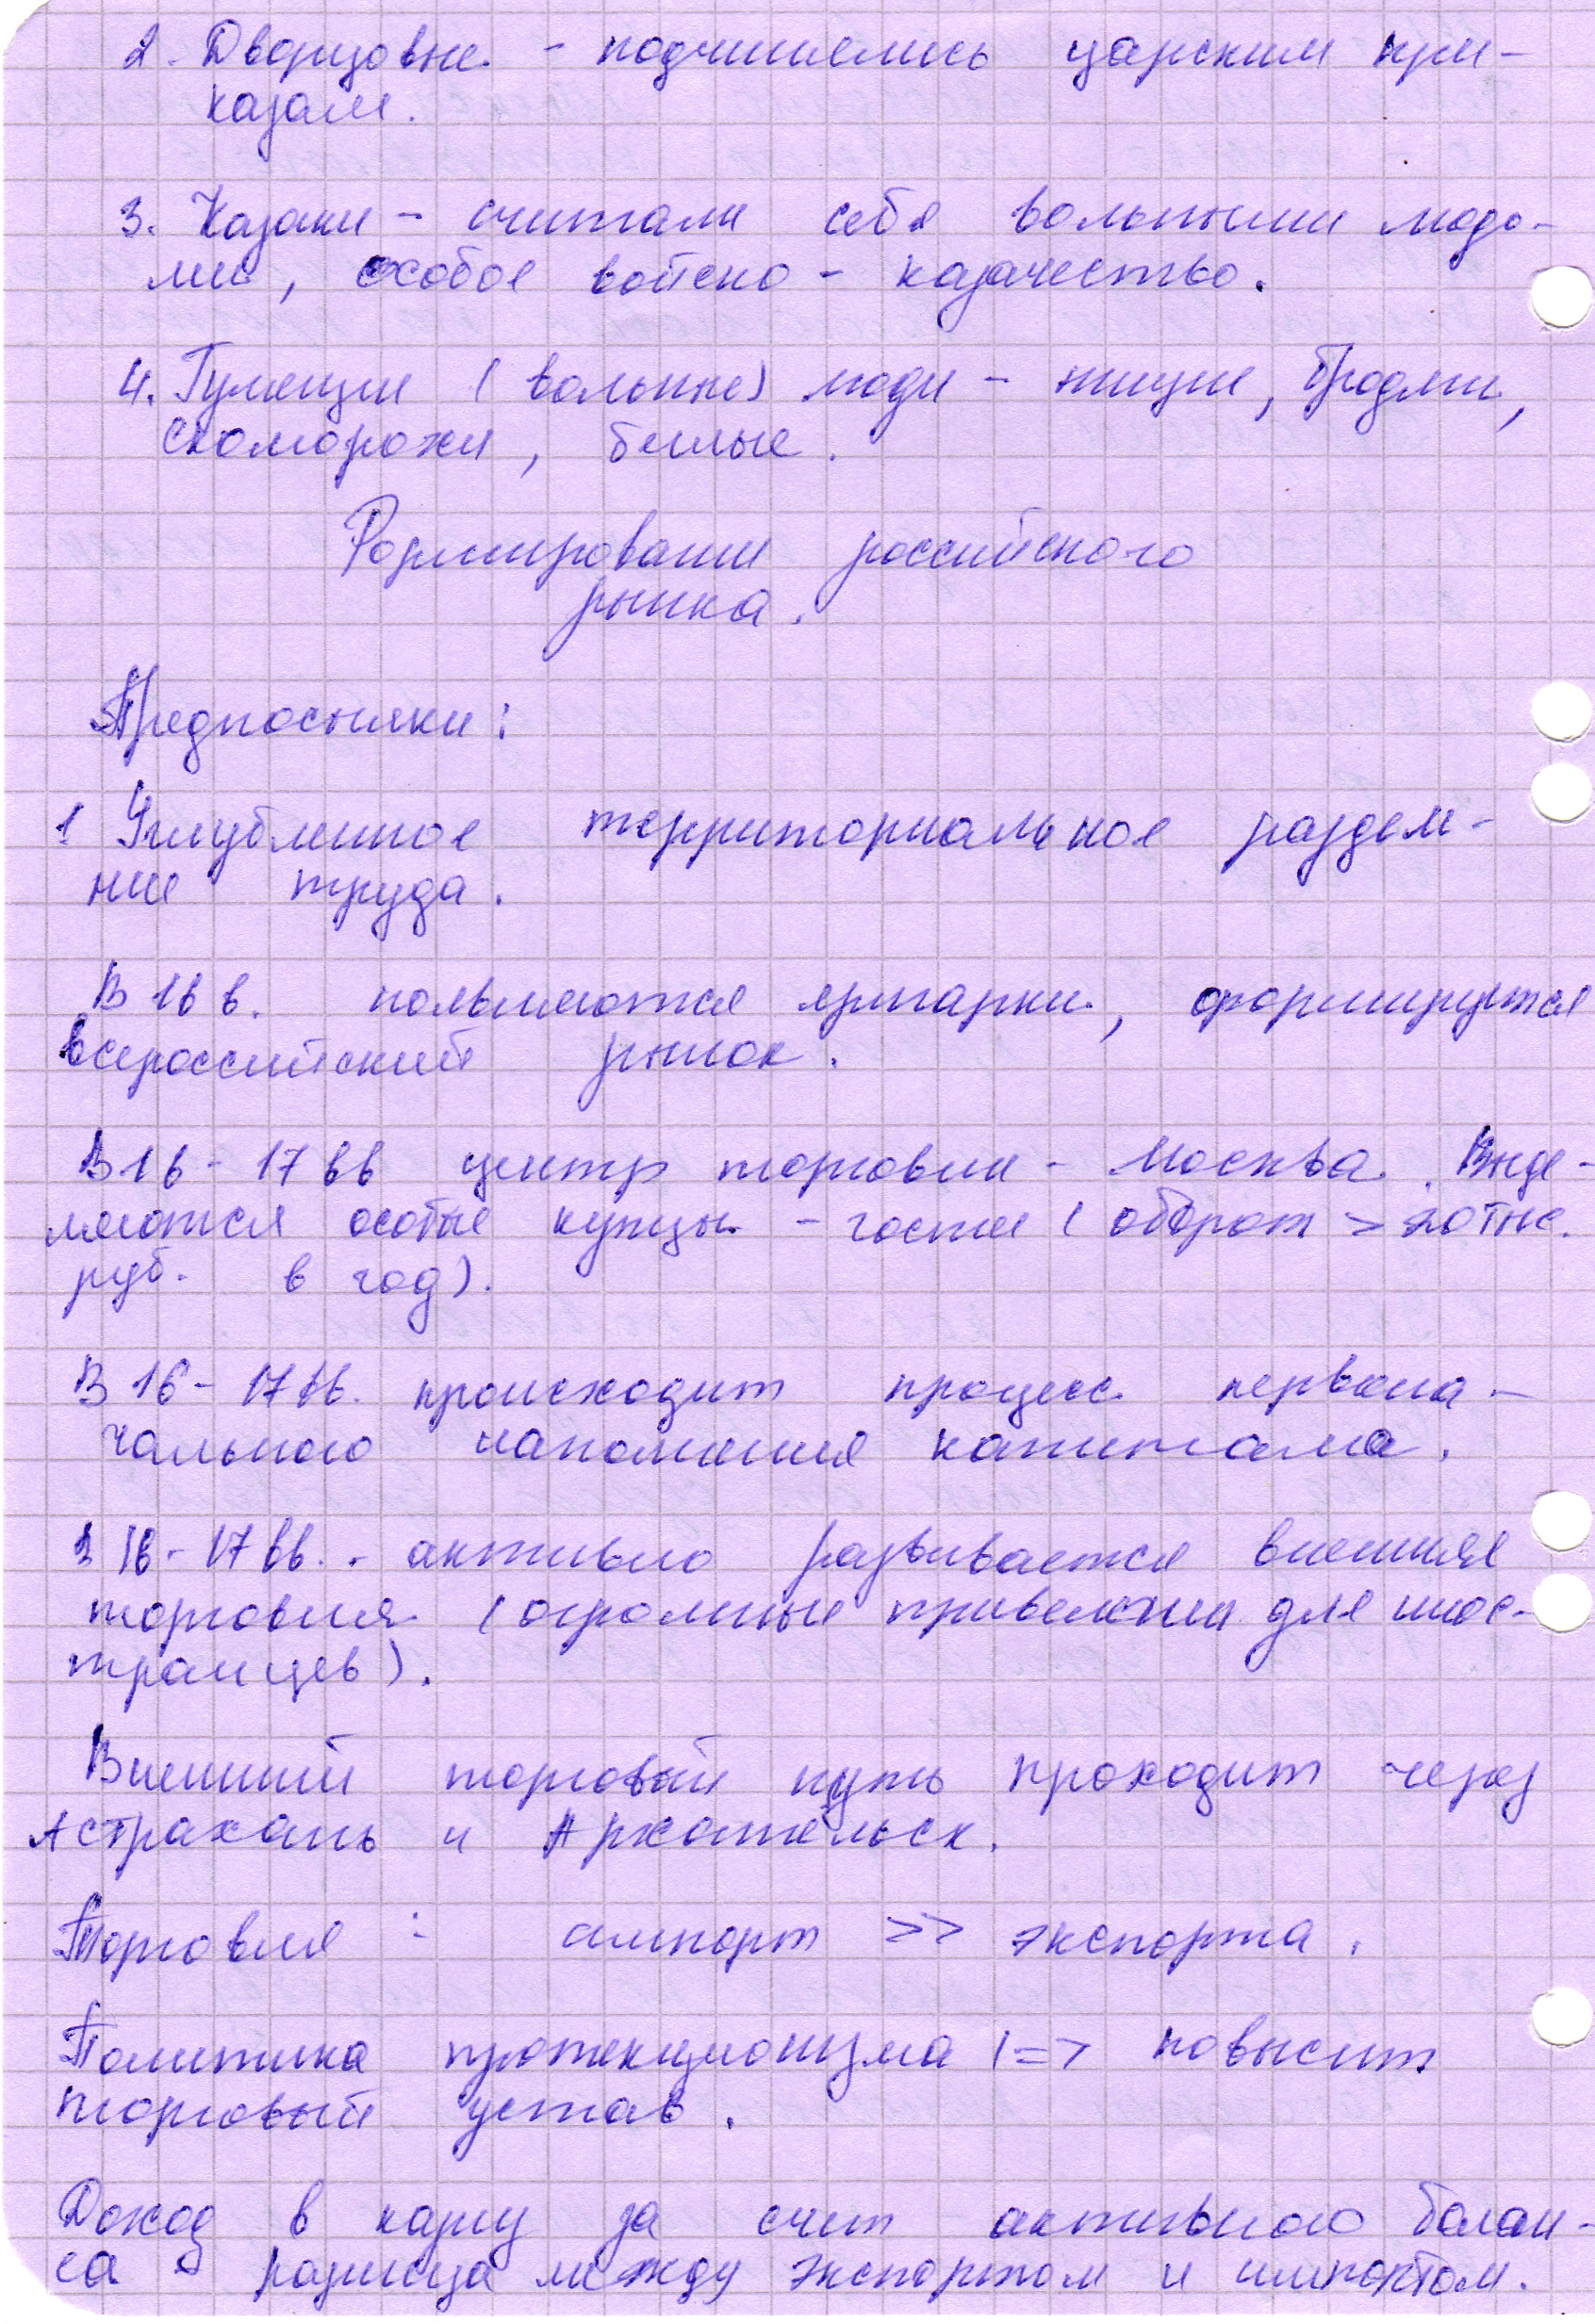 2. Дворцовые - подчинялись царским при-
казам.
3. Казаки - считали себя вольными людь-
ми, особое войско - казачество.
4. Гулящие (вольные) люди - нищие, бродяги,
скоморохи, беглые.
Формирование российского
рынка.
Предпосылки:
1 Углубленное территориальное разделе-
ние труда.
В 16 в. появляются ярмарки, формируется
всероссийский рынок.
В 16 - 17 вв центр торговли - Москва. Выде-
ляются особые купцы - гости (оборот > 20 тыс.
руб. в год).
В 16 - 17 вв. происходит процесс первона-
чального накопления капитала.
В 16 - 17 вв. - активно развивается внешняя
торговля (огромные привелегии для инос-
транцев).
Внешний торговый путь проходит через
Астрахань и Архангельск.
Торговля : импорт >> экспорта.
Политика протекционизма => повысит
торговый устав.
Доход в казну за счет активного балан-
са - разница между экспортом и импортом.